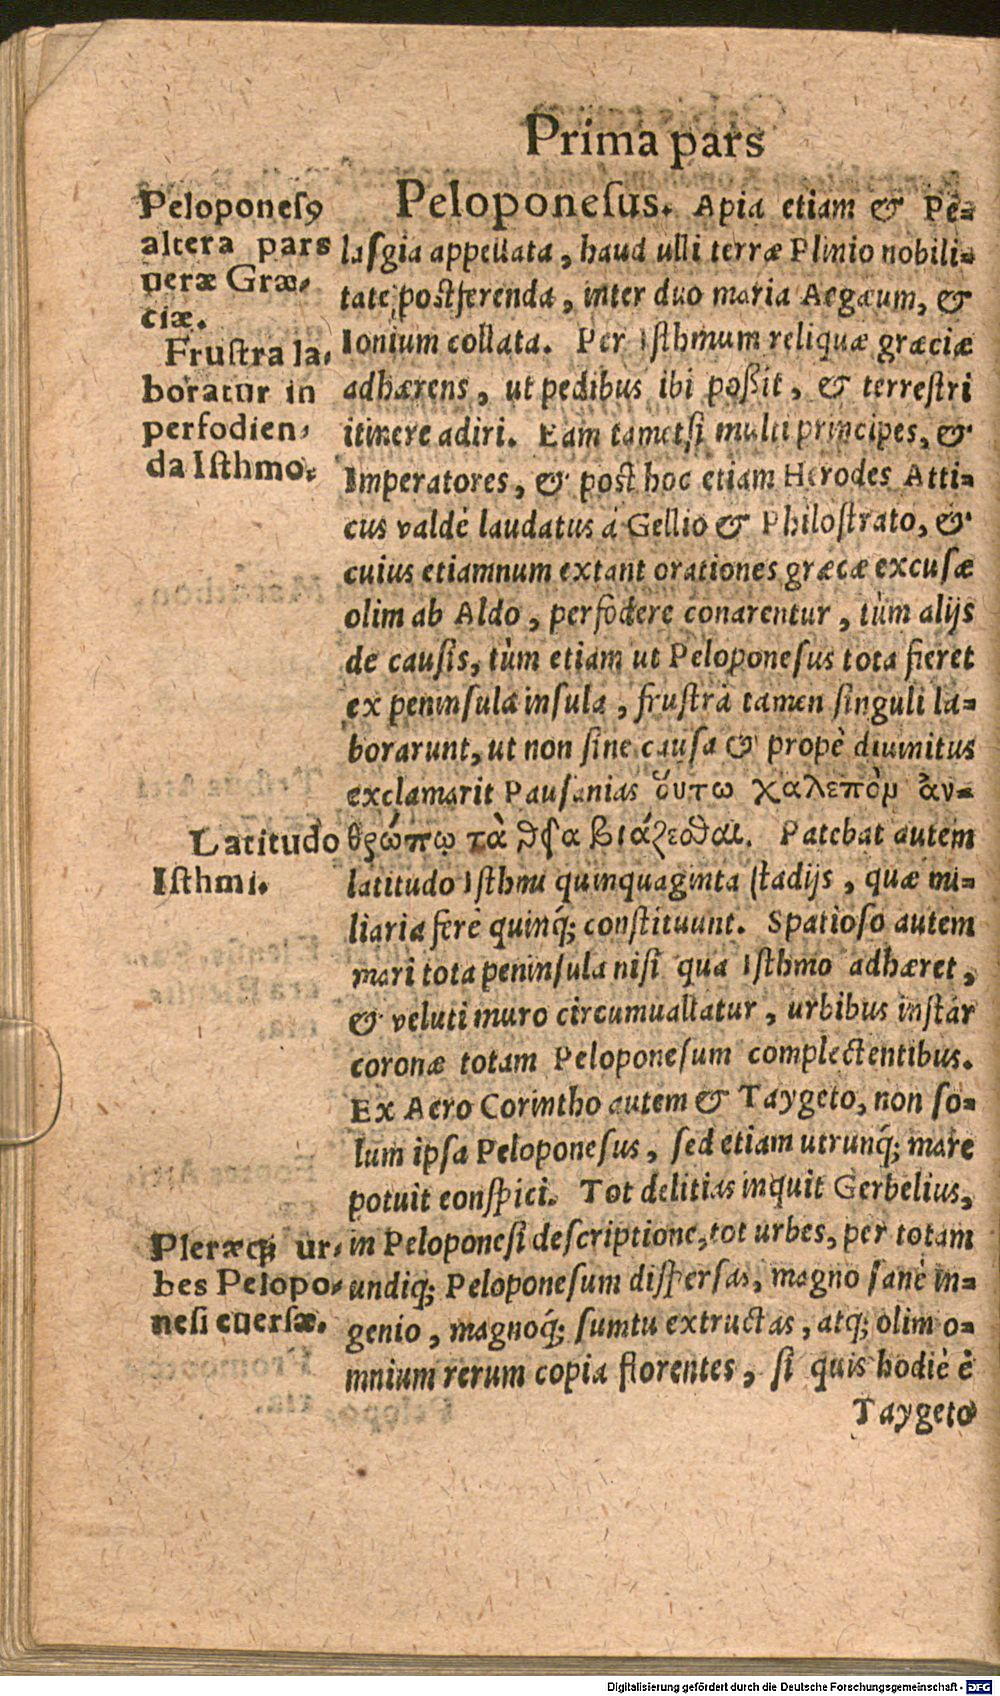 Prima pars
Peloponeſꝰ
altera pars
ueræ Græ-
ciæ.
Fruſtra la-
boratur in
perfodien-
da Iſthmo.
Latitudo
Iſthmi.
Pleræq; ur-
bes Pelopo-
neſi euerſæ.
Peloponeſus. Apia etiam & Pe-
laſgia appellata, haud ulli terræ Plinio nobili-
tate poſtferenda, inter duo maria Aegæum, &
Ionium collata. Per Iſthmum reliquæ græciæ
adhærens, ut pedibus ibi poßit, & terreſtri
itinere adiri. Eam tametſi multi principes, &
Imperatores, & poſt hoc etiam Herodes Atti-
cus valdè laudatus á Gellio & Philoſtrato, &
cuius etiamnum extant orationes græcæ excuſæ
olim ab Aldo, perfodere conarentur, tùm alijs
de cauſis, tùm etiam ut Peloponeſus tota fieret
ex peninſula inſula, fruſtrà tamen ſinguli la-
borarunt, ut non ſine cauſa & propè diuinitus
exclamarit Pauſanias οὕτω χαλεπὸμ ἀν-
θρώπῳ τὰ θεῖα βιάζεσθαι. Patebat autem
latitudo Iſthmi quinquaginta ſtadijs, quæ mi-
liaria ferè quinq́; conſtituunt. Spatioſo autem
mari tota peninſula niſi qua Iſthmo adhæret,
& veluti muro circumuallatur, urbibus inſtár
coronæ totam Peloponeſum complectentibus.
Ex Acro Corintho autem & Taygeto, non ſo-
lum ipſa Peloponeſus, ſed etiam utrunq́; mare
potuit conſpici. Tot delitias inquit Gerbelius,
in Peloponeſi deſcriptione, tot urbes, per totam
undiq; Peloponeſum diſperſas, magno ſanè in-
genio, magnoq́; ſumtu extructas, atq; olim o-
mnium rerum copia florentes, ſi quis hodiè è
Taygeto
Digitalisierung gefördert durch die Deutsche Forschungsgemeinschaft - DFG